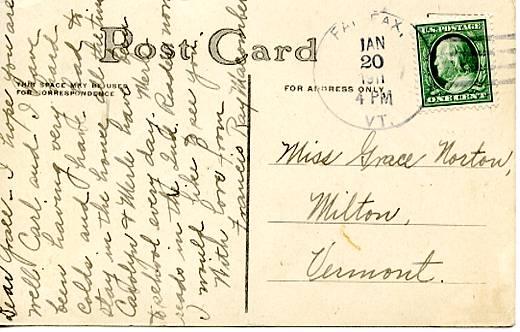 Post Card
THIS SPACE MAY BE USED
FOR CORRESPONDENCE
FOR ADDRESS ONLY
FAIRFAX,
JAN
20
1911
4 PM
VT.
U.S. POSTAGE
ONE CENT
Miss Grace Norton,
Milton,
Vermont.
Dear Grace - I hope you are
well. Carl and I have
been having very hard
colds and have had to
stay in the house
Carolyn & Merle have been
to school every day. Merle
reads in the 2nd. Reader now.
I would like to see you.
With love from
Francis Ray